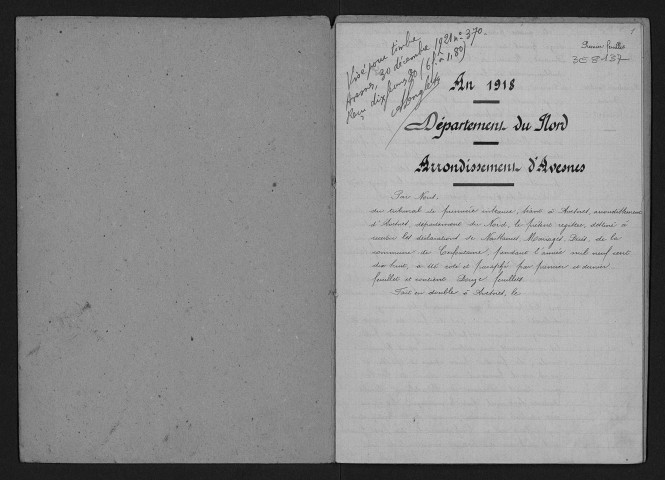 1
Premier feuillet
3E 8137
Visé pour timbre
Avesnes, 30 décembre 1921 n° 370.
Reçu dix francs 80 (6f. à 1,80)
An 1918
Département du Nord
Arrondissement d'Avesnes
Par Nous,
du tribunal de première instance, séant à Avesnes, arrondissement
d'Avesnes, département du Nord, le présent registre, destiné à
recevoir les déclarations de Naissances Mariages, Décès, de la
commune de pendant l'année mil neuf cent
dix huit, a été coté et paraphé par premier et dernier
feuillet et contient Douze feuillets.
Fait en double à Avesnes, le